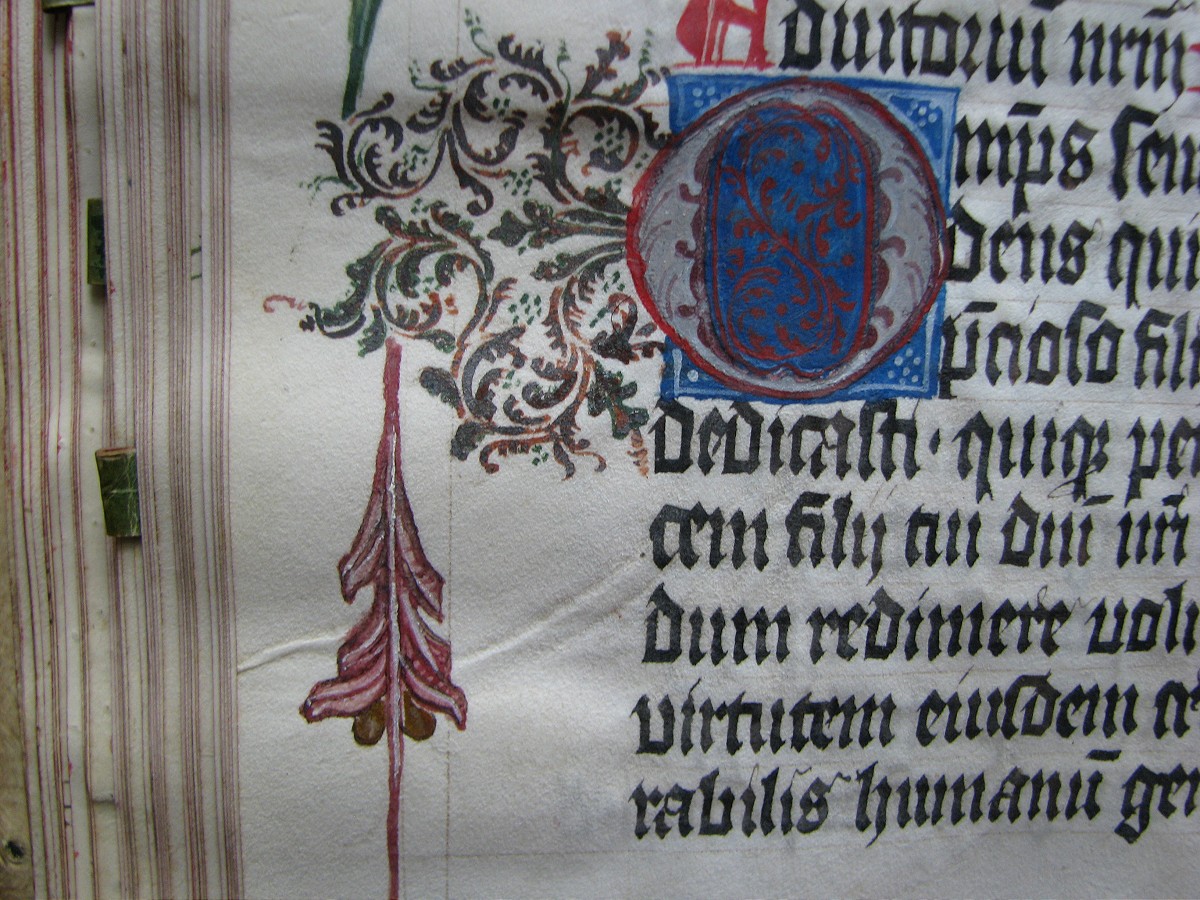 Adiutoriū nrm̄
Omp̄s sem
deus qui
p̄cioso fili
dedicasti · quiqꝫ pe
cem filij tui dn̄i nr̄i
dum redimere volu
virtutem eiusdem
rabilis humanū gen